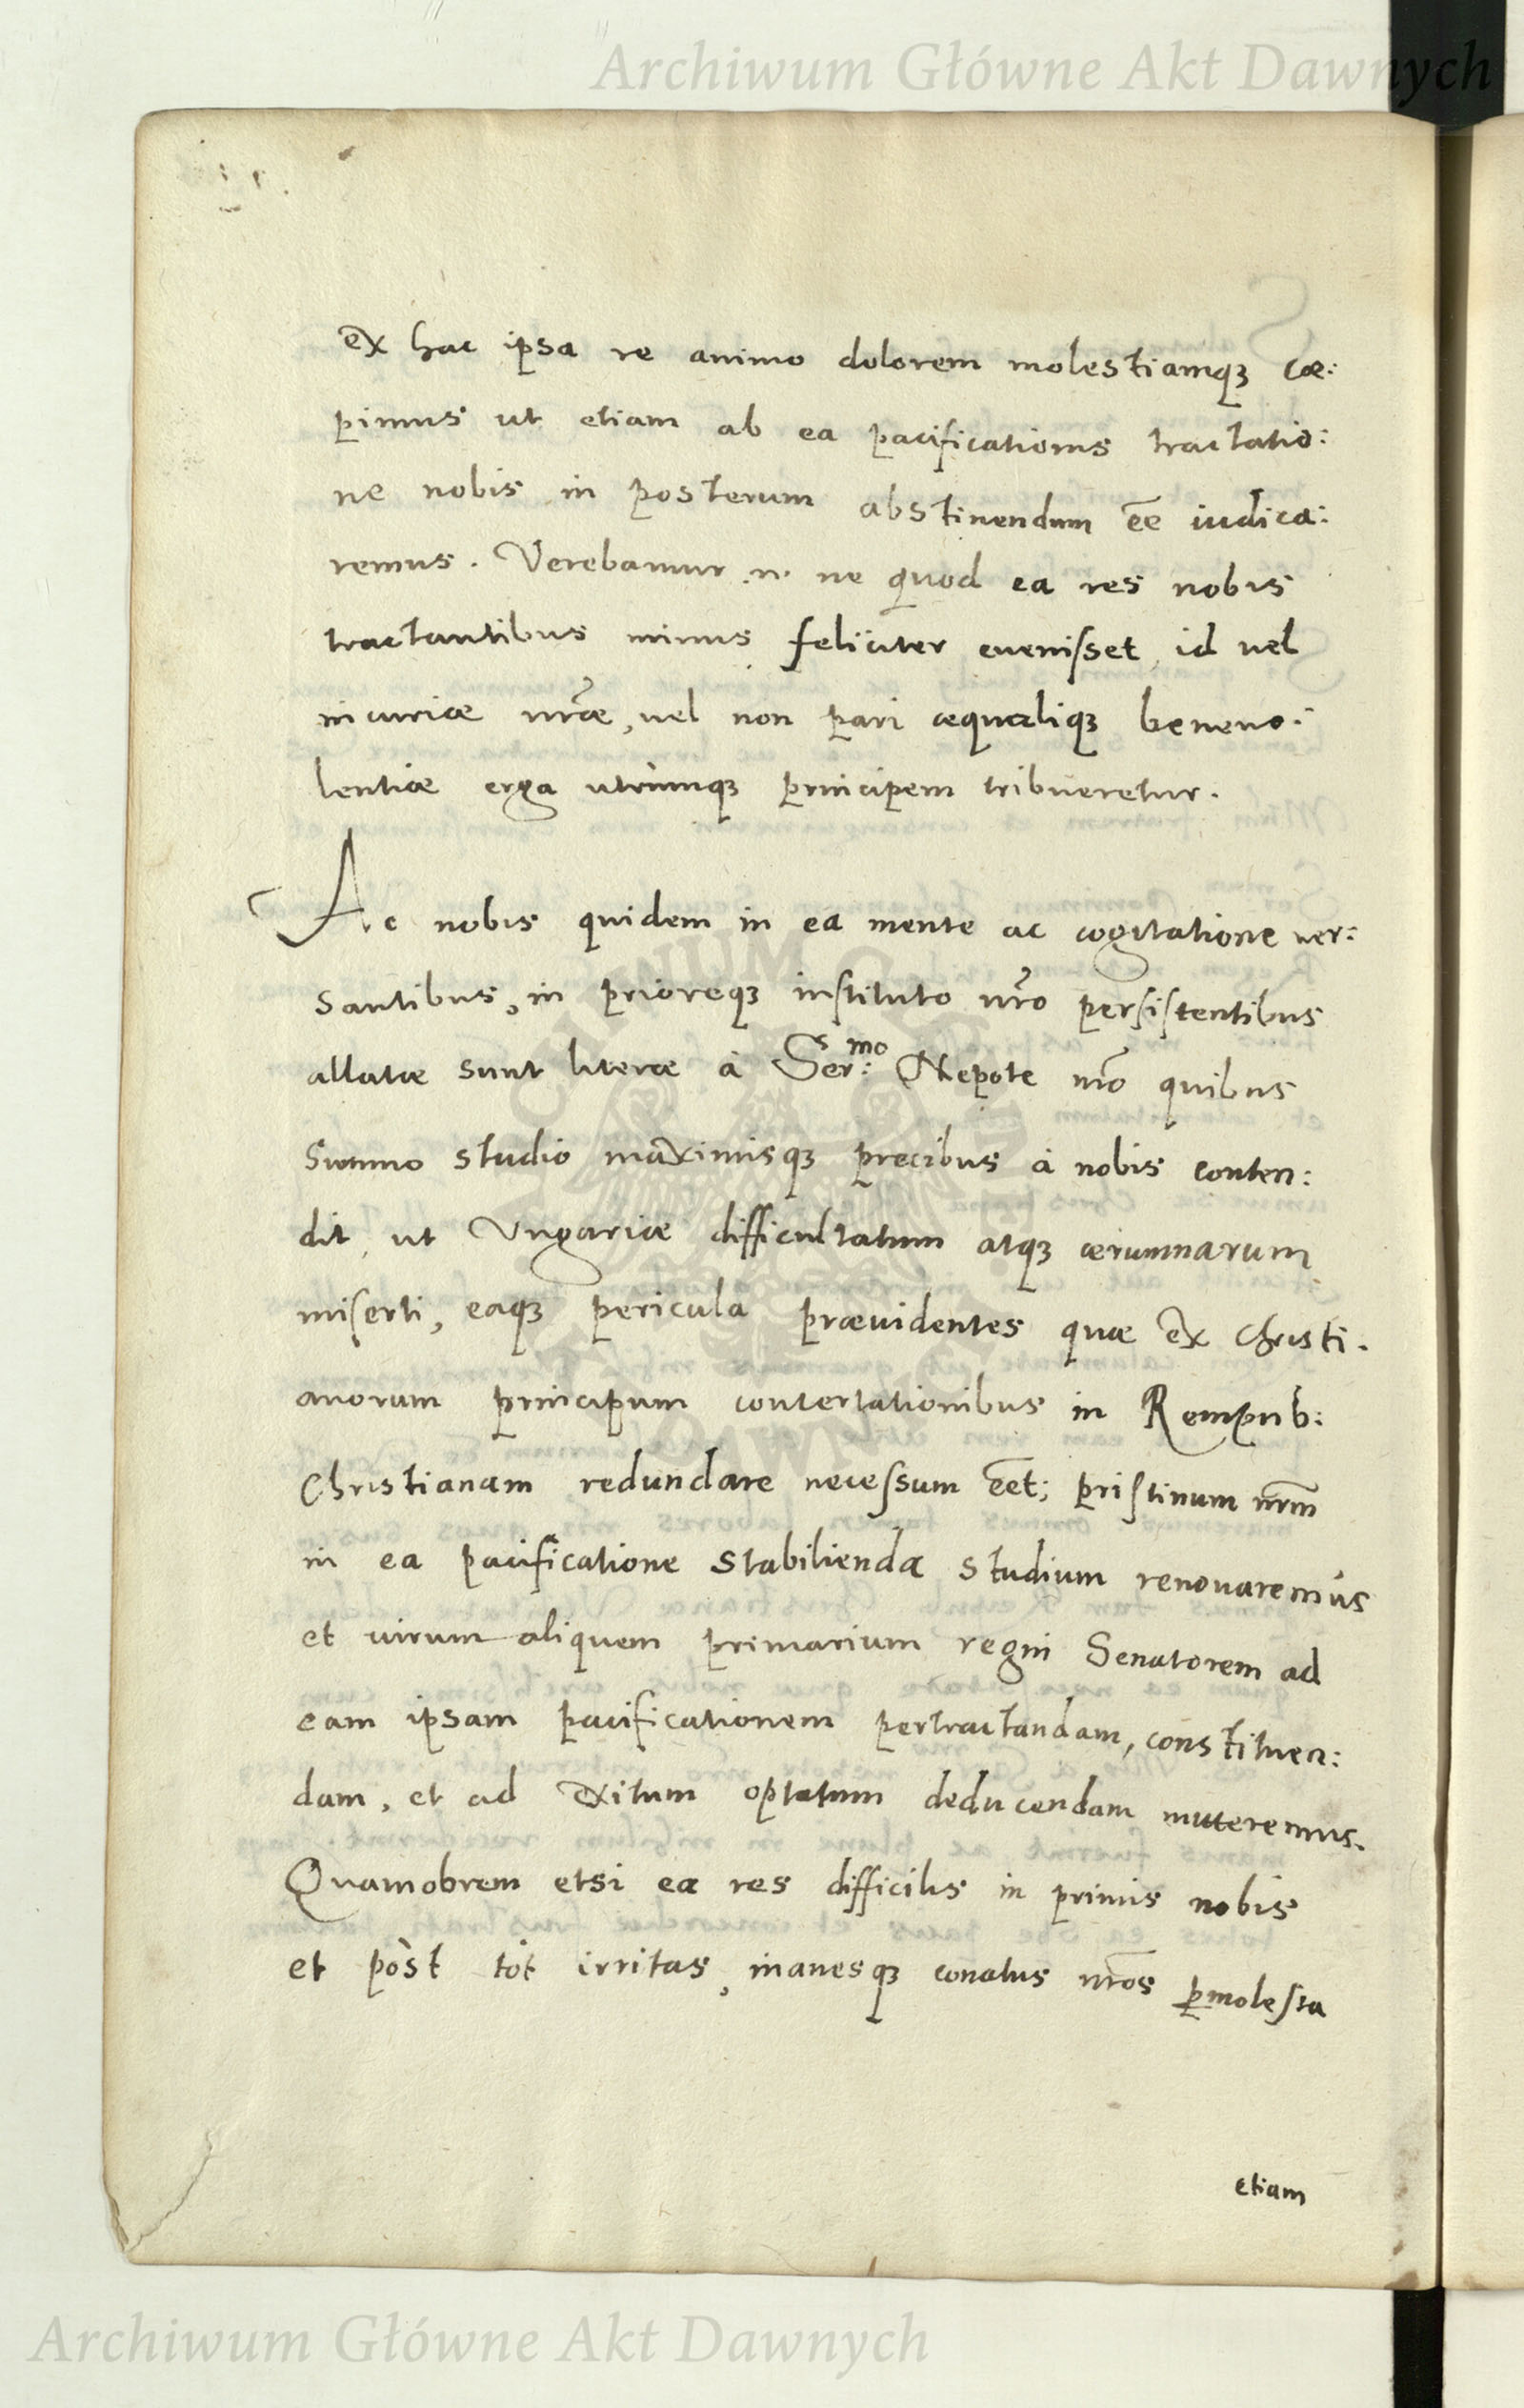 Archiwum Główne Akt Dawnych
ex hac ipsa re animo dolorem molestiamqꝫ cœ:
pimus ut etiam ab ea pacificationis tractatio:
ne nobis in posterum abstinendum ēe iudica:
remus. Verebamur .n. ne quod ea res nobis
tractantibus minus feliciter evenisset, id vel
incuriæ nr̃æ, vel non pari æqualiqꝫ benevo:
lentiæ erga utrumqꝫ principem tribueretur.
Ac nobis quidem in ea mente ac cogitatione ver:
santibus, in prioreqꝫ instituto nr̃o persistentibus
allatæ sunt literæ à Ser:mo Nepote nr̃o quibus
summo studio maximisqꝫ precibus à nobis conten:
dit, ut Vngariæ difficultatum atqꝫ ærumnarum
miserti, eaqꝫ pericula prævidentes quæ ex Christi.
anorum principum contertationibus in Rempub:
Christianam redundare necessum eēt; pristinum nr̃m
in ea pacificatione stabilienda studium renovaremus
et virum aliquem primarium regni Senatorem ad
eam ipsam pacificationem pertractandam, constituen:
dam, et ad exitum optatum deducendam mitteremus.
Quamobrem etsi ea res difficilis in primis nobis
et pòst tòt irritas, inanesqꝫ conatus nr̃os ꝑmolesta
etiam
Archiwum Główne Akt Dawnych